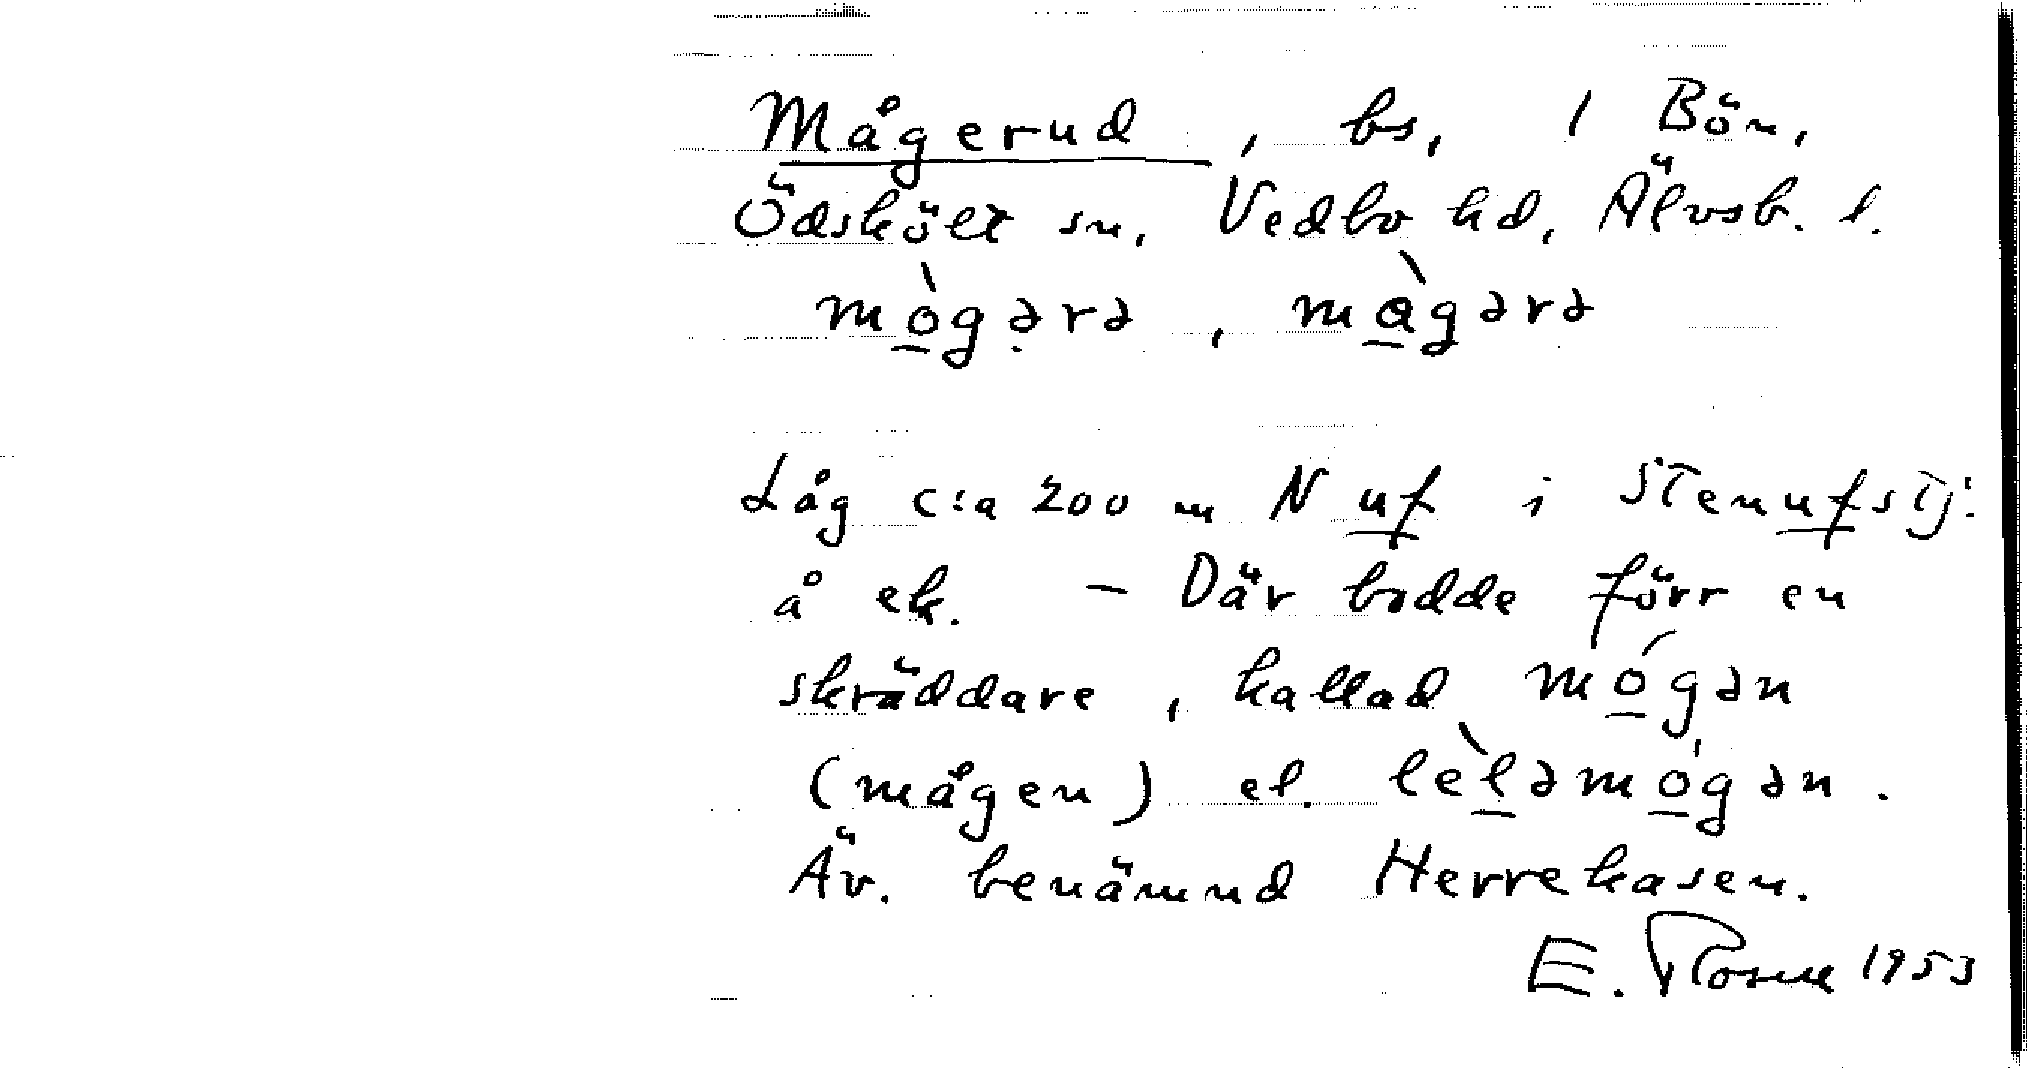 Mågerud, bs, 1 Bön,
Ödskölt sn, Vedbo hd, Älvsb. l.
mògərə, màgərə
Låg c:a 200 m N uf i Stenufstj:
å ek. – Där bodde förr en
skräddare, kallad mógən
(mågen) el. lèləmógən.
Äv. benämnd Herrekasen.
E. 1953